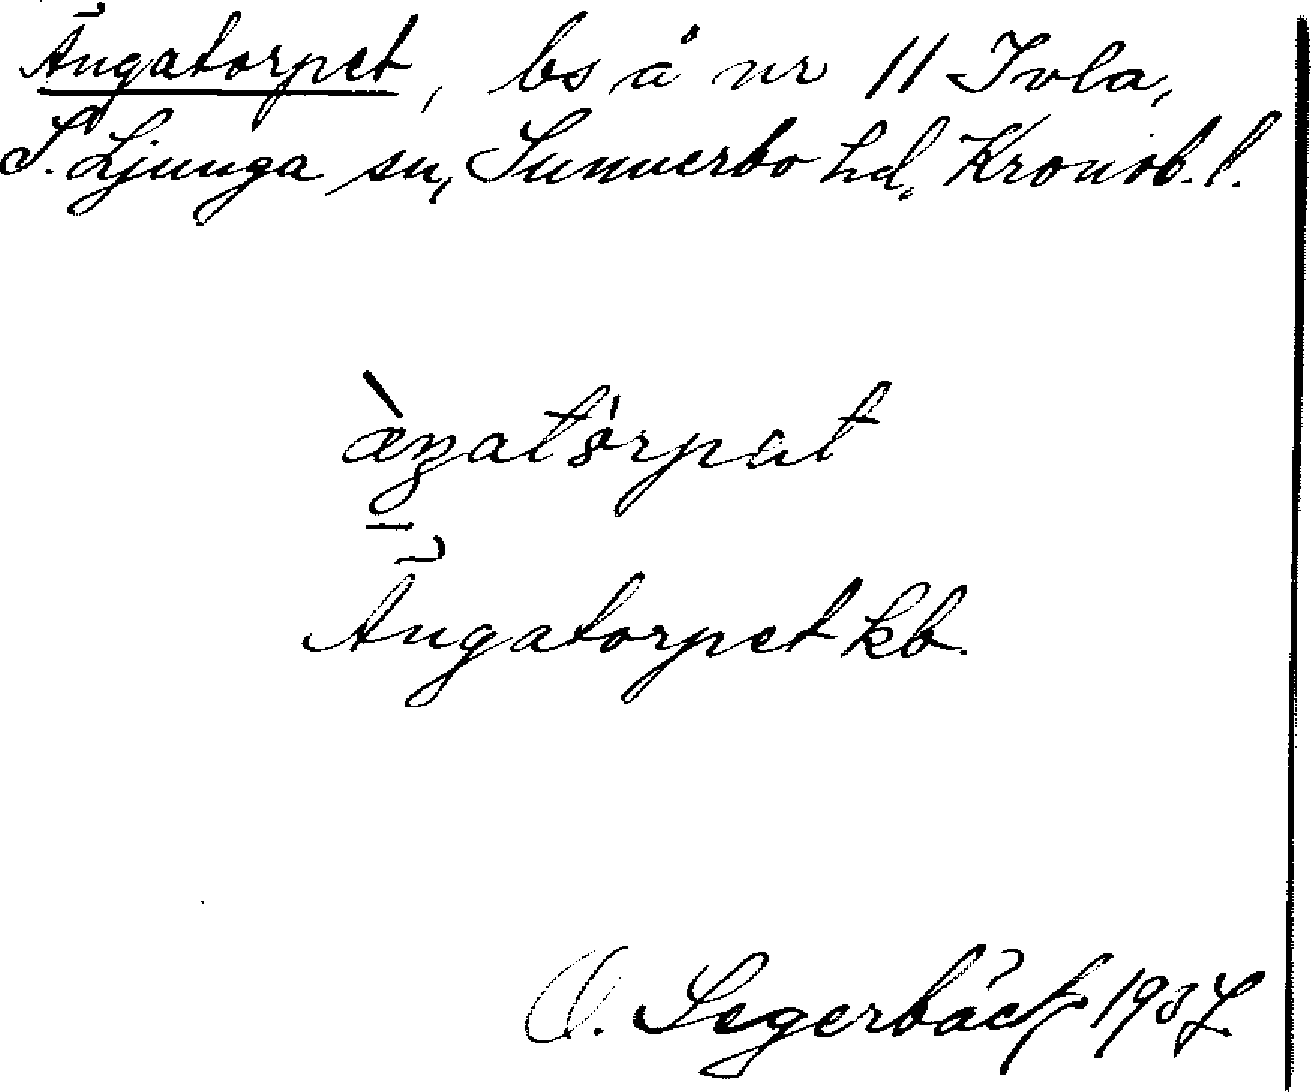 Ängatorpet, bs å nr 11 Ivla,
S. Ljunga sn, Sunnerbo hd, Kronob. l.
æ̀ŋatórpat
Ängatorpet kb.
O. Segerbäck 1937